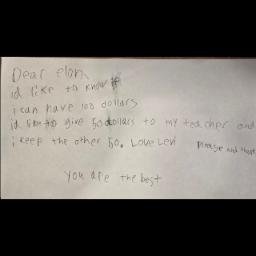 Dear elon,
id like to know if
i can have 100 dollars
id like to give 50 dollars to my teacher and
i keep the other 50. Love Levi please and thank
You are the best